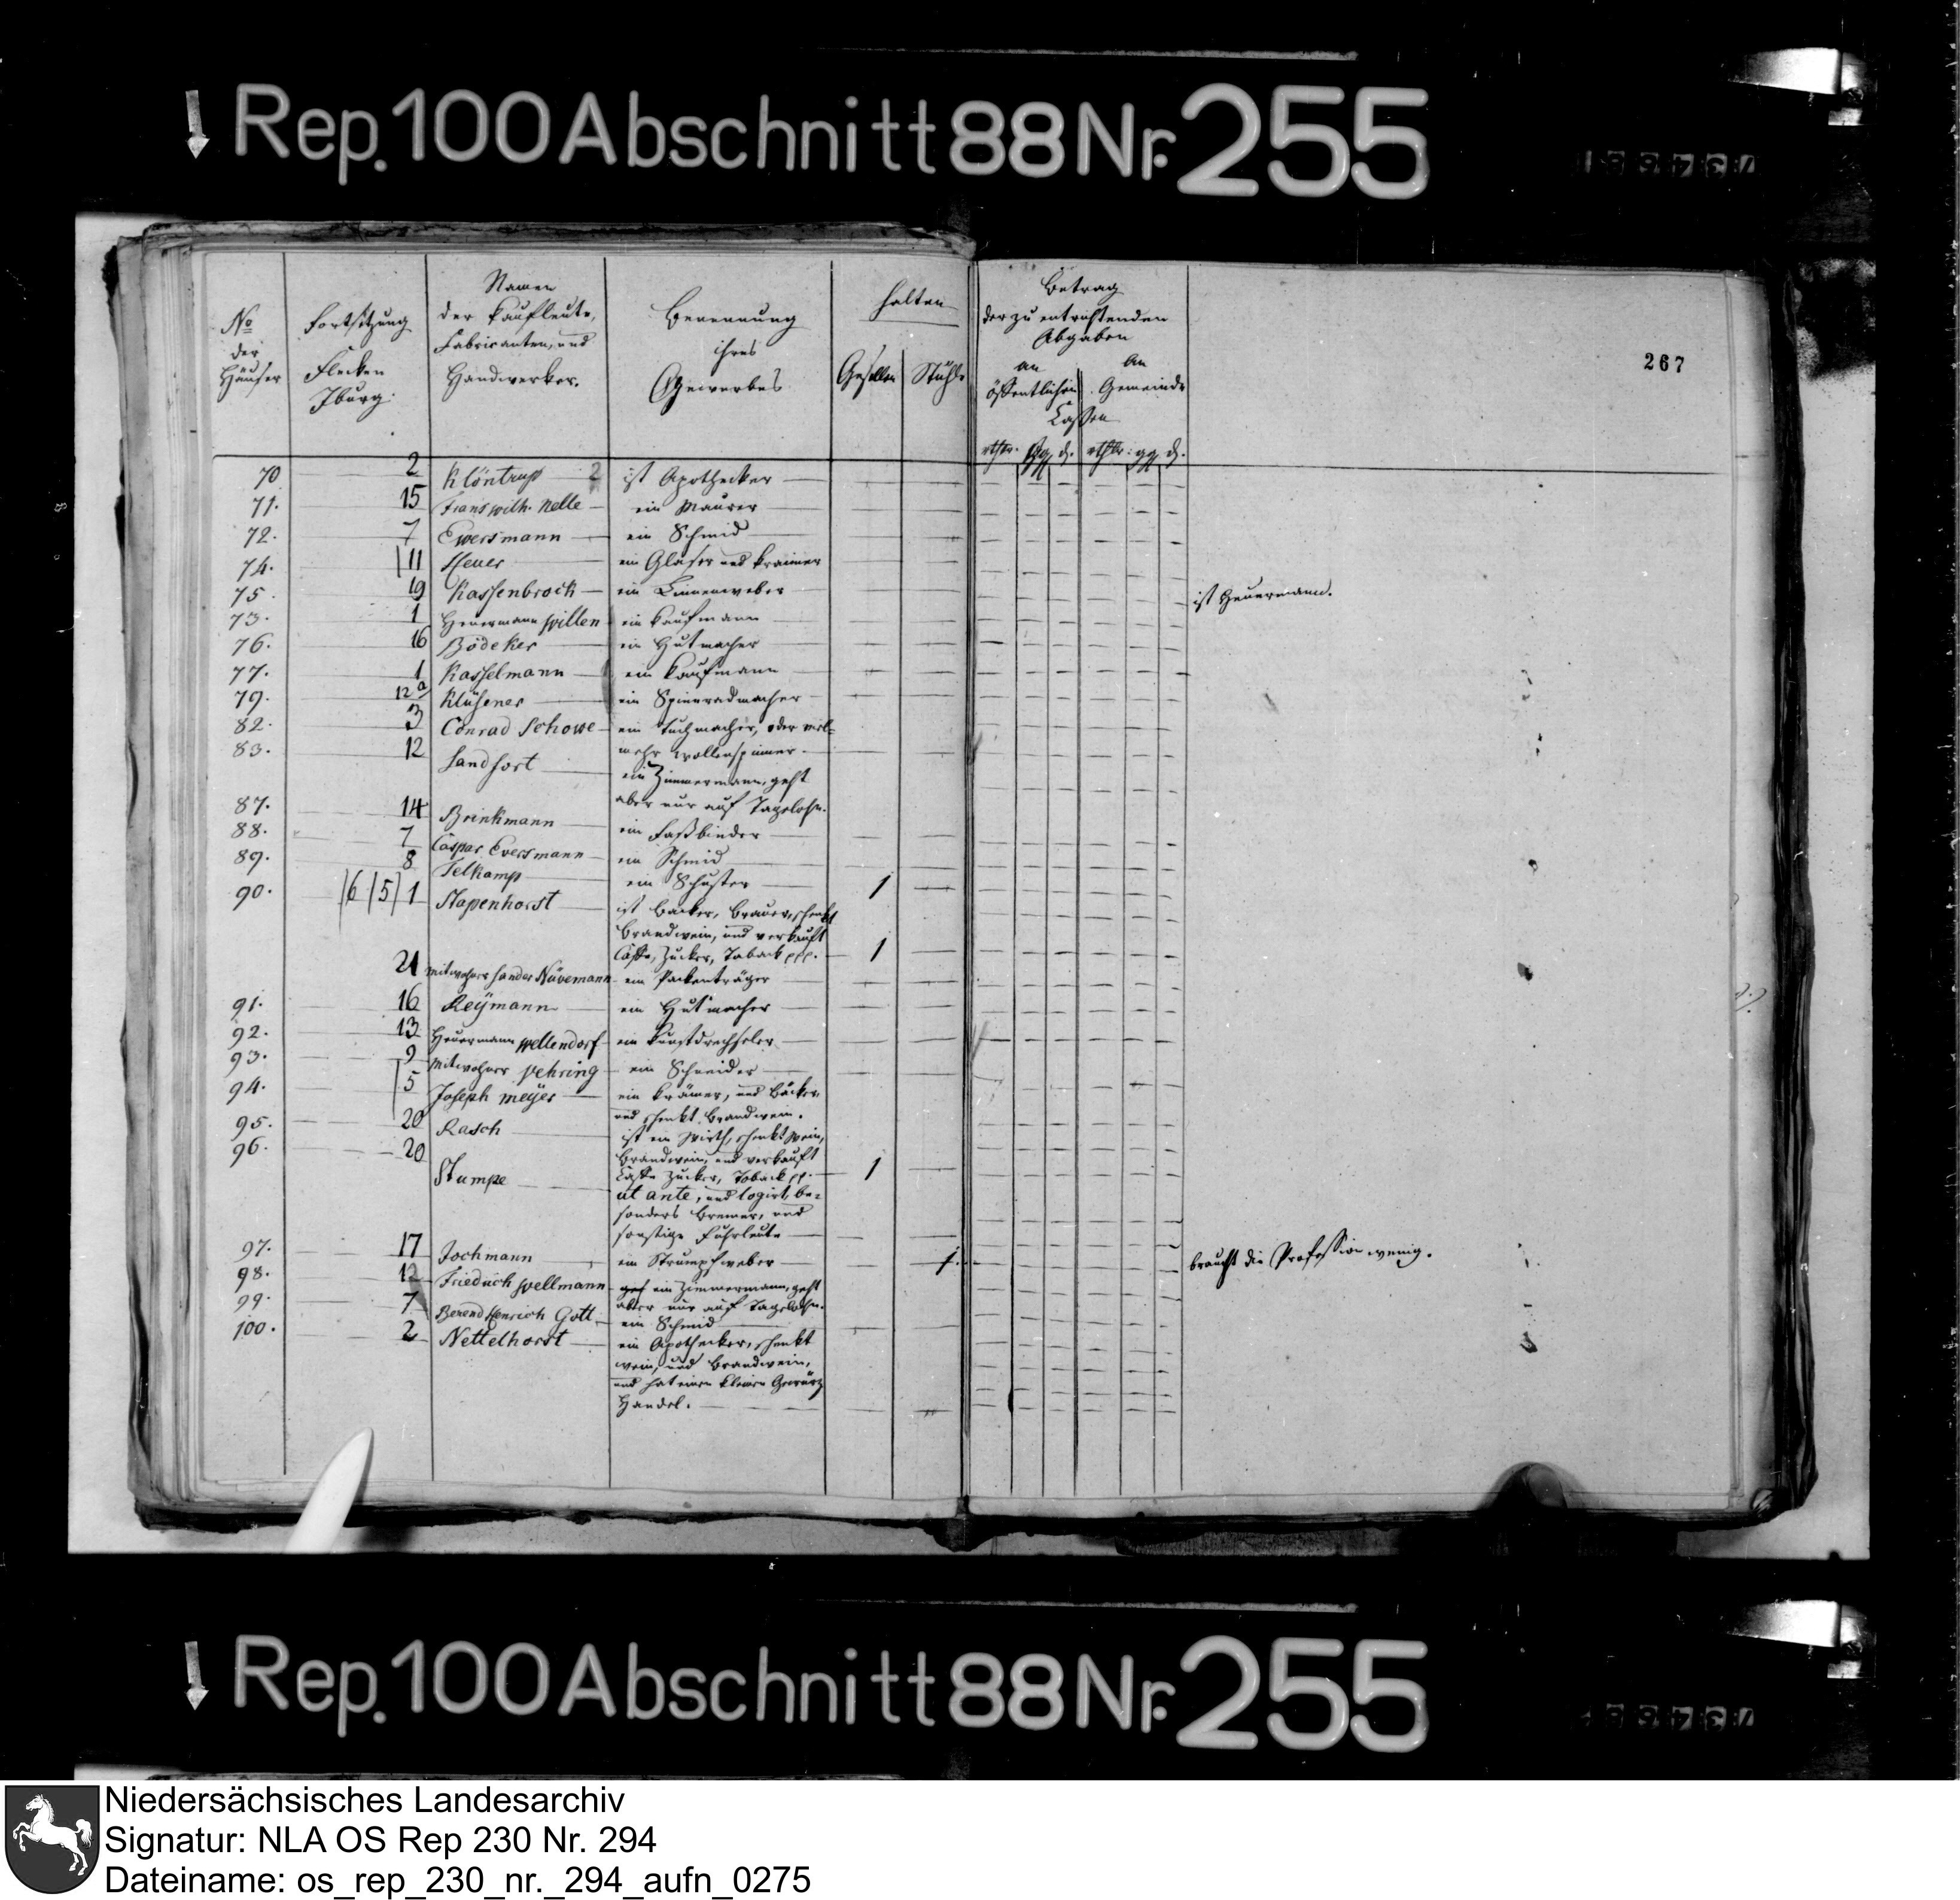 Rep. 100 Abschnitt 88 Nr. 255
267
No der Häuser
Fortsetzung Flecken Iburg.
Namen der Kaufleute, Fabricanten, und Handwerker.
Benennung ihres Gewerbes
halten
Gesellen Stühle
Betrag
der zu entrichtenden
Abgaben
an öffentlichen
an Gemeinde
Cassen
rthlr. ggr d. rthlr. ggr d.
70 2 Klöntrup 2 ist Apothecker
71. 15 Frans wilh. Nelle ein Maurer
72. 7 Ewersmann ein Schmid
74. 11 Heuer ein Glaser und Kraimer
75. 19 Kassenbrock ein Linnenweber ist Heuermann.
73. 1 Heuermann Willen ein Kaufmann
76. 16 Bödeker ein Hutmacher
77. 1 Kasselmann ein Kaufmann
79. 12a Klüsener ein Spinnradmacher
82. 3 Conrad Schowe ein Tuchmacher, oder viel-
mehr Wollenspinner.
83. 12 Sandfort ein Zimmermann, geht
aber nur auf Tagelohn.
87. 14 Brinkmann ein Faßbinder
88. 7 Caspar Eversmann ein Schmid
89. 8 Telkamp ein Schuster 1
90. 6 5 1 Stapenhorst ist Bäcker, Brauer, schenkt
Brandwein, und verkauft
Caffe, Zucker, Taback ppp. 1
21 Mitwohner Sander Növemann ein Packenträger
91. 16 Reÿmann ein Hutmacher
92. 13 Heuermann Wellendorf ein Kunstdrechseler
93. 9 Mitwohner Vehring ein Schneider
94. 5 Joseph Meÿer ein Krämer, und Bäcker,
und schenkt Brandwein.
95. 20 Rasch ist ein Wirth, schenkt Wein,
Brandwein, und verkauft
Caffe Zucker, Taback pp. 1
96. 20 Stumpe ut ante, und logirt, be-
sonders Bremer, und
sonstige Fuhrleute
97. 17 Jochmann ein Strumpfweber 1. braucht die Profession wenig.
98. 12 Friedrich Wellmann ein Zimmermann, geht
aber nur auf Tagelohn.
99. 7 Berend Henrich Gott ein Schmid
100. 2 Nettelhorst ein Apothecker, schenkt
Wein, und Brandwein,
und hat einen kleinen Gewürz
Handel.
Rep. 100 Abschnitt 88 Nr. 255
Niedersächsisches Landesarchiv
Signatur: NLA OS Rep 230 Nr. 294
Dateiname: os_rep_230_nr._294_aufn_0275